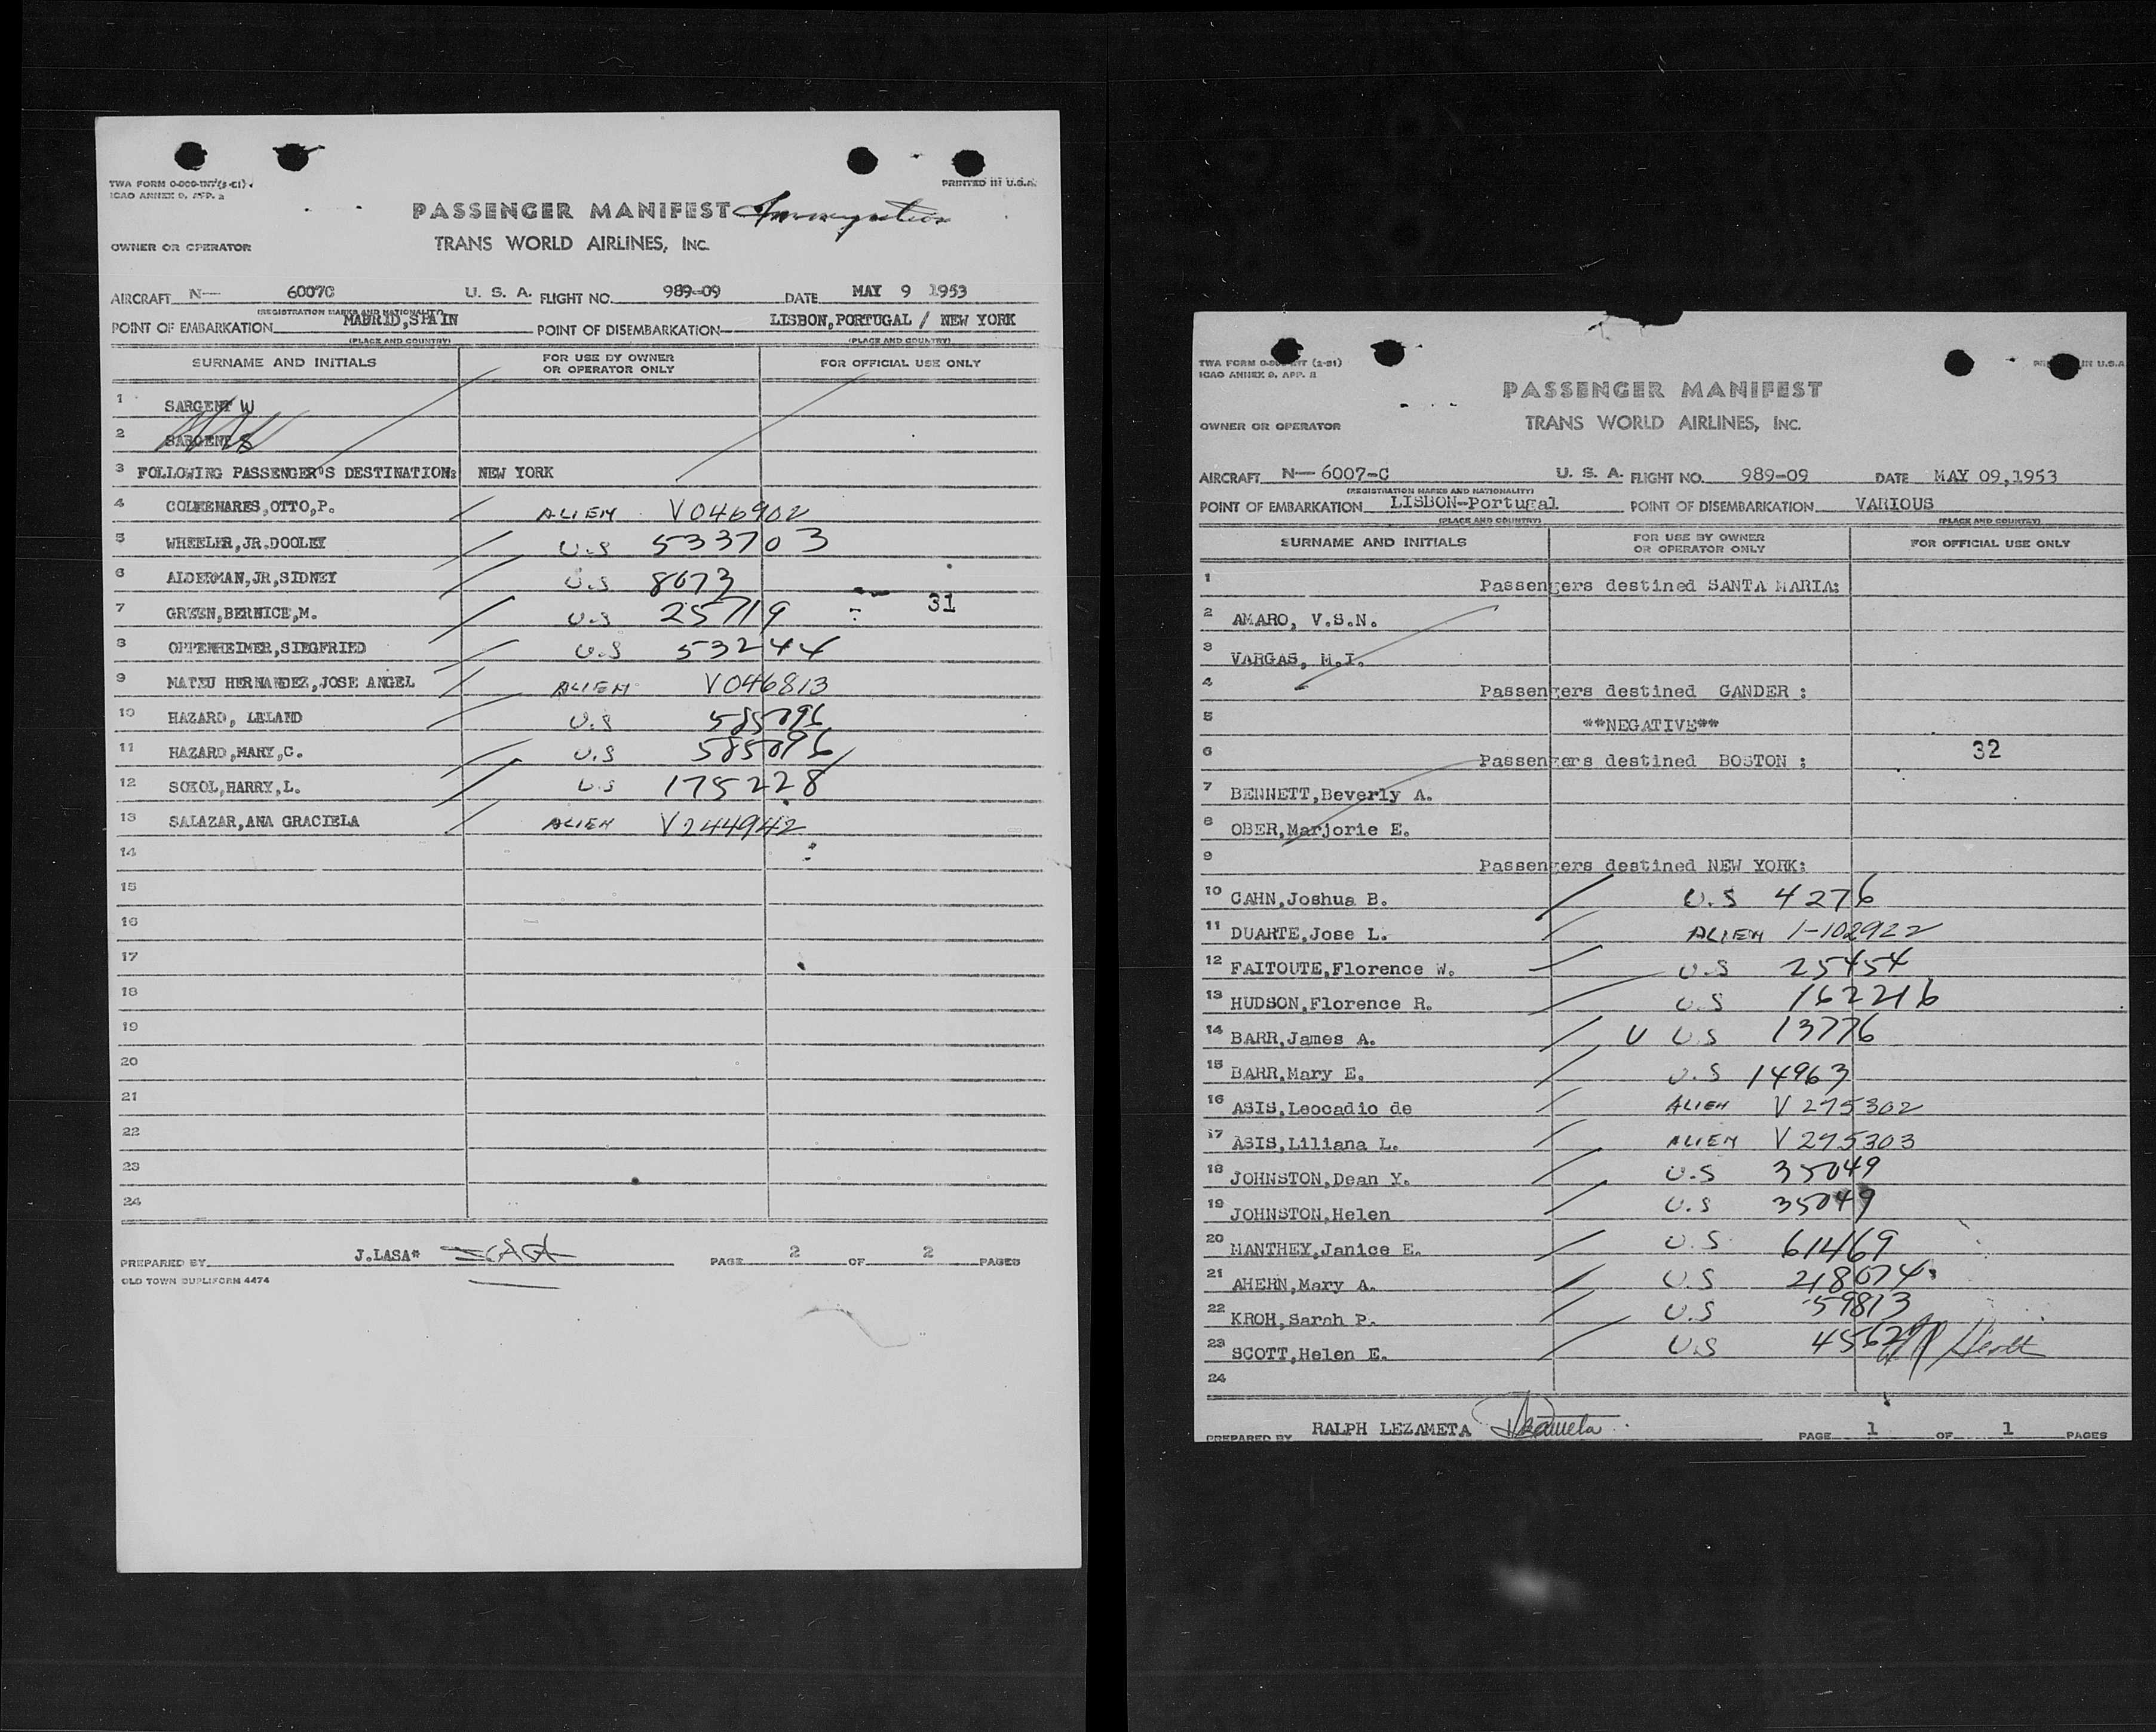 TWA FORM 0-000-INT (2-51)
ICAO ANNEX 9, APP. 2
PRINTED IN U.S.A.
PASSENGER MANIFEST Immigration
OWNER OR OPERATOR
TRANS WORLD AIRLINES, INC.
AIRCRAFT N— 6007C U. S. A. FLIGHT NO. 989-09 DATE MAY 9 1953
(REGISTRATION MARKS AND NATIONALITY)
POINT OF EMBARKATION MADRID,SPAIN POINT OF DISEMBARKATION LISBON,PORTUGAL / NEW YORK
(PLACE AND COUNTRY) (PLACE AND COUNTRY)
SURNAME AND INITIALS FOR USE BY OWNER OR OPERATOR ONLY FOR OFFICIAL USE ONLY
1 SARGENT W
2 SARGENT S
3 FOLLOWING PASSENGER'S DESTINATION: NEW YORK
4 COLMENARES,OTTO,P. ALIEN V046902
5 WHEELER,JR.DOOLEY U.S 533703
6 ALDERMAN,JR,SIDNEY U.S 8073
7 GREEN,BERNICE,M. U.S 25719 31
8 OPPENHEIMER,SIEGFRIED U.S 53244
9 MATEU HERNANDEZ,JOSE ANGEL ALIEN V046813
10 HAZARD, LELAND U.S 585096
11 HAZARD,MARY,C. U.S 585096
12 SOKOL,HARRY,L. U.S 175228
13 SALAZAR,ANA GRACIELA ALIEN V244942
14
15
16
17
18
19
20
21
22
23
24
PREPARED BY J.LASA* PAGE 2 OF 2 PAGES
OLD TOWN DUPLIFORM 4474
TWA FORM 0-000-INT (2-51)
ICAO ANNEX 9, APP. 2
IN U.S.A
PASSENGER MANIFEST
OWNER OR OPERATOR
TRANS WORLD AIRLINES, INC.
AIRCRAFT N— 6007-C U. S. A. FLIGHT NO. 989-09 DATE MAY 09,1953
(REGISTRATION MARKS AND NATIONALITY)
POINT OF EMBARKATION LISBON-Portugal POINT OF DISEMBARKATION VARIOUS
(PLACE AND COUNTRY) (PLACE AND COUNTRY)
SURNAME AND INITIALS FOR USE BY OWNER OR OPERATOR ONLY FOR OFFICIAL USE ONLY
1 Passengers destined SANTA MARIA:
2 AMARO, V.S.N.
3 VARGAS, M.I.
4 Passengers destined GANDER :
5 **NEGATIVE**
6 Passengers destined BOSTON : 32
7 BENNETT,Beverly A.
8 OBER,Marjorie E.
9 Passengers destined NEW YORK:
10 CAHN,Joshua B. U.S 4276
11 DUARTE,Jose L. ALIEN 1-102922
12 FAITOUTE,Florence W. U.S 25454
13 HUDSON,Florence R. U.S 162216
14 BARR,James A. U U.S 13776
15 BARR,Mary E. U.S 14963
16 ASIS,Leocadio de ALIEN V 275302
17 ASIS,Liliana L. ALIEN V 275303
18 JOHNSTON,Dean Y. U.S 35049
19 JOHNSTON,Helen U.S 35049
20 MANTHEY,Janice E. U.S 61469
21 AHERN,Mary A. U.S 218074
22 KROH,Sarah P. U.S 59813
23 SCOTT,Helen E. U.S
24
PREPARED BY RALPH LEZAMETA Lezameta PAGE 1 OF 1 PAGES